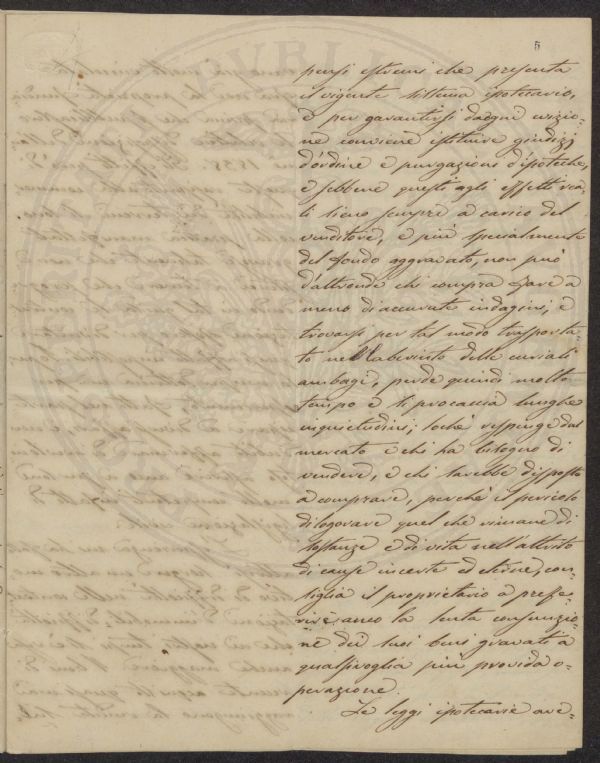 5
pensi estremi che presenta
il vigente sistema ipotecario,
e per garantirsi da ogni evizio=
ne conviene istituire giudizj
d'ordine e purgazione d'ipoteche,
e sebbene questi agli effetti rea=
li sieno sempre a carico del
venditore, e più specialmente
del fondo aggravato, non può
d'altronde chi compra fare a
meno di accurate indagini, e
trovarsi per tal modo trasporta=
to nel laberinto delle curiali
ambagi, perde quindi molto
tempo e si procaccia lunghe
inquietudini; lochè respinge dal
mercato e chi ha bisogno di
vendere, e chi sarebbe disposto
a comprare, perchè il pericolo
di logorare quel che rimane di
sostanze e di vita nell'attrito
di cause incerte ed eterne, con=
siglia il proprietario a prefe=
rire anco la lenta consunzio=
ne dei suoi beni gravati a
qualsivoglia più provida o=
perazione.
Le leggi ipotecarie ave=
PUBLIC